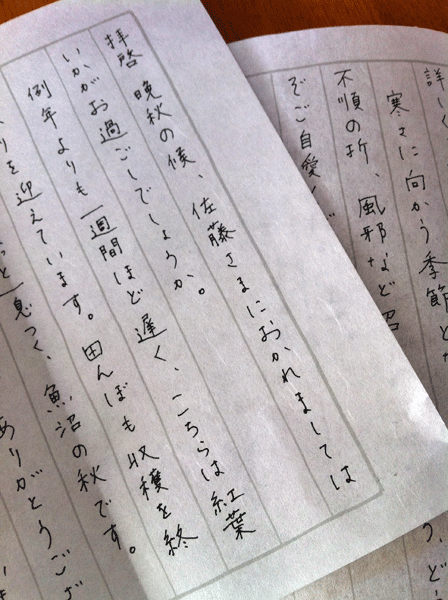 拝啓 晩秋の候、佐藤さまにおかれましては
いかがお過ごしでしょうか。
例年よりも一週間ほど遅く、こちらは紅葉
りを迎えています。田んぼも収穫を終
っと一息つく、魚沼の秋です。
ありがとうござ
詳しく
寒さに向かう季節とな
不順の折、風邪など召
ぞご自愛く